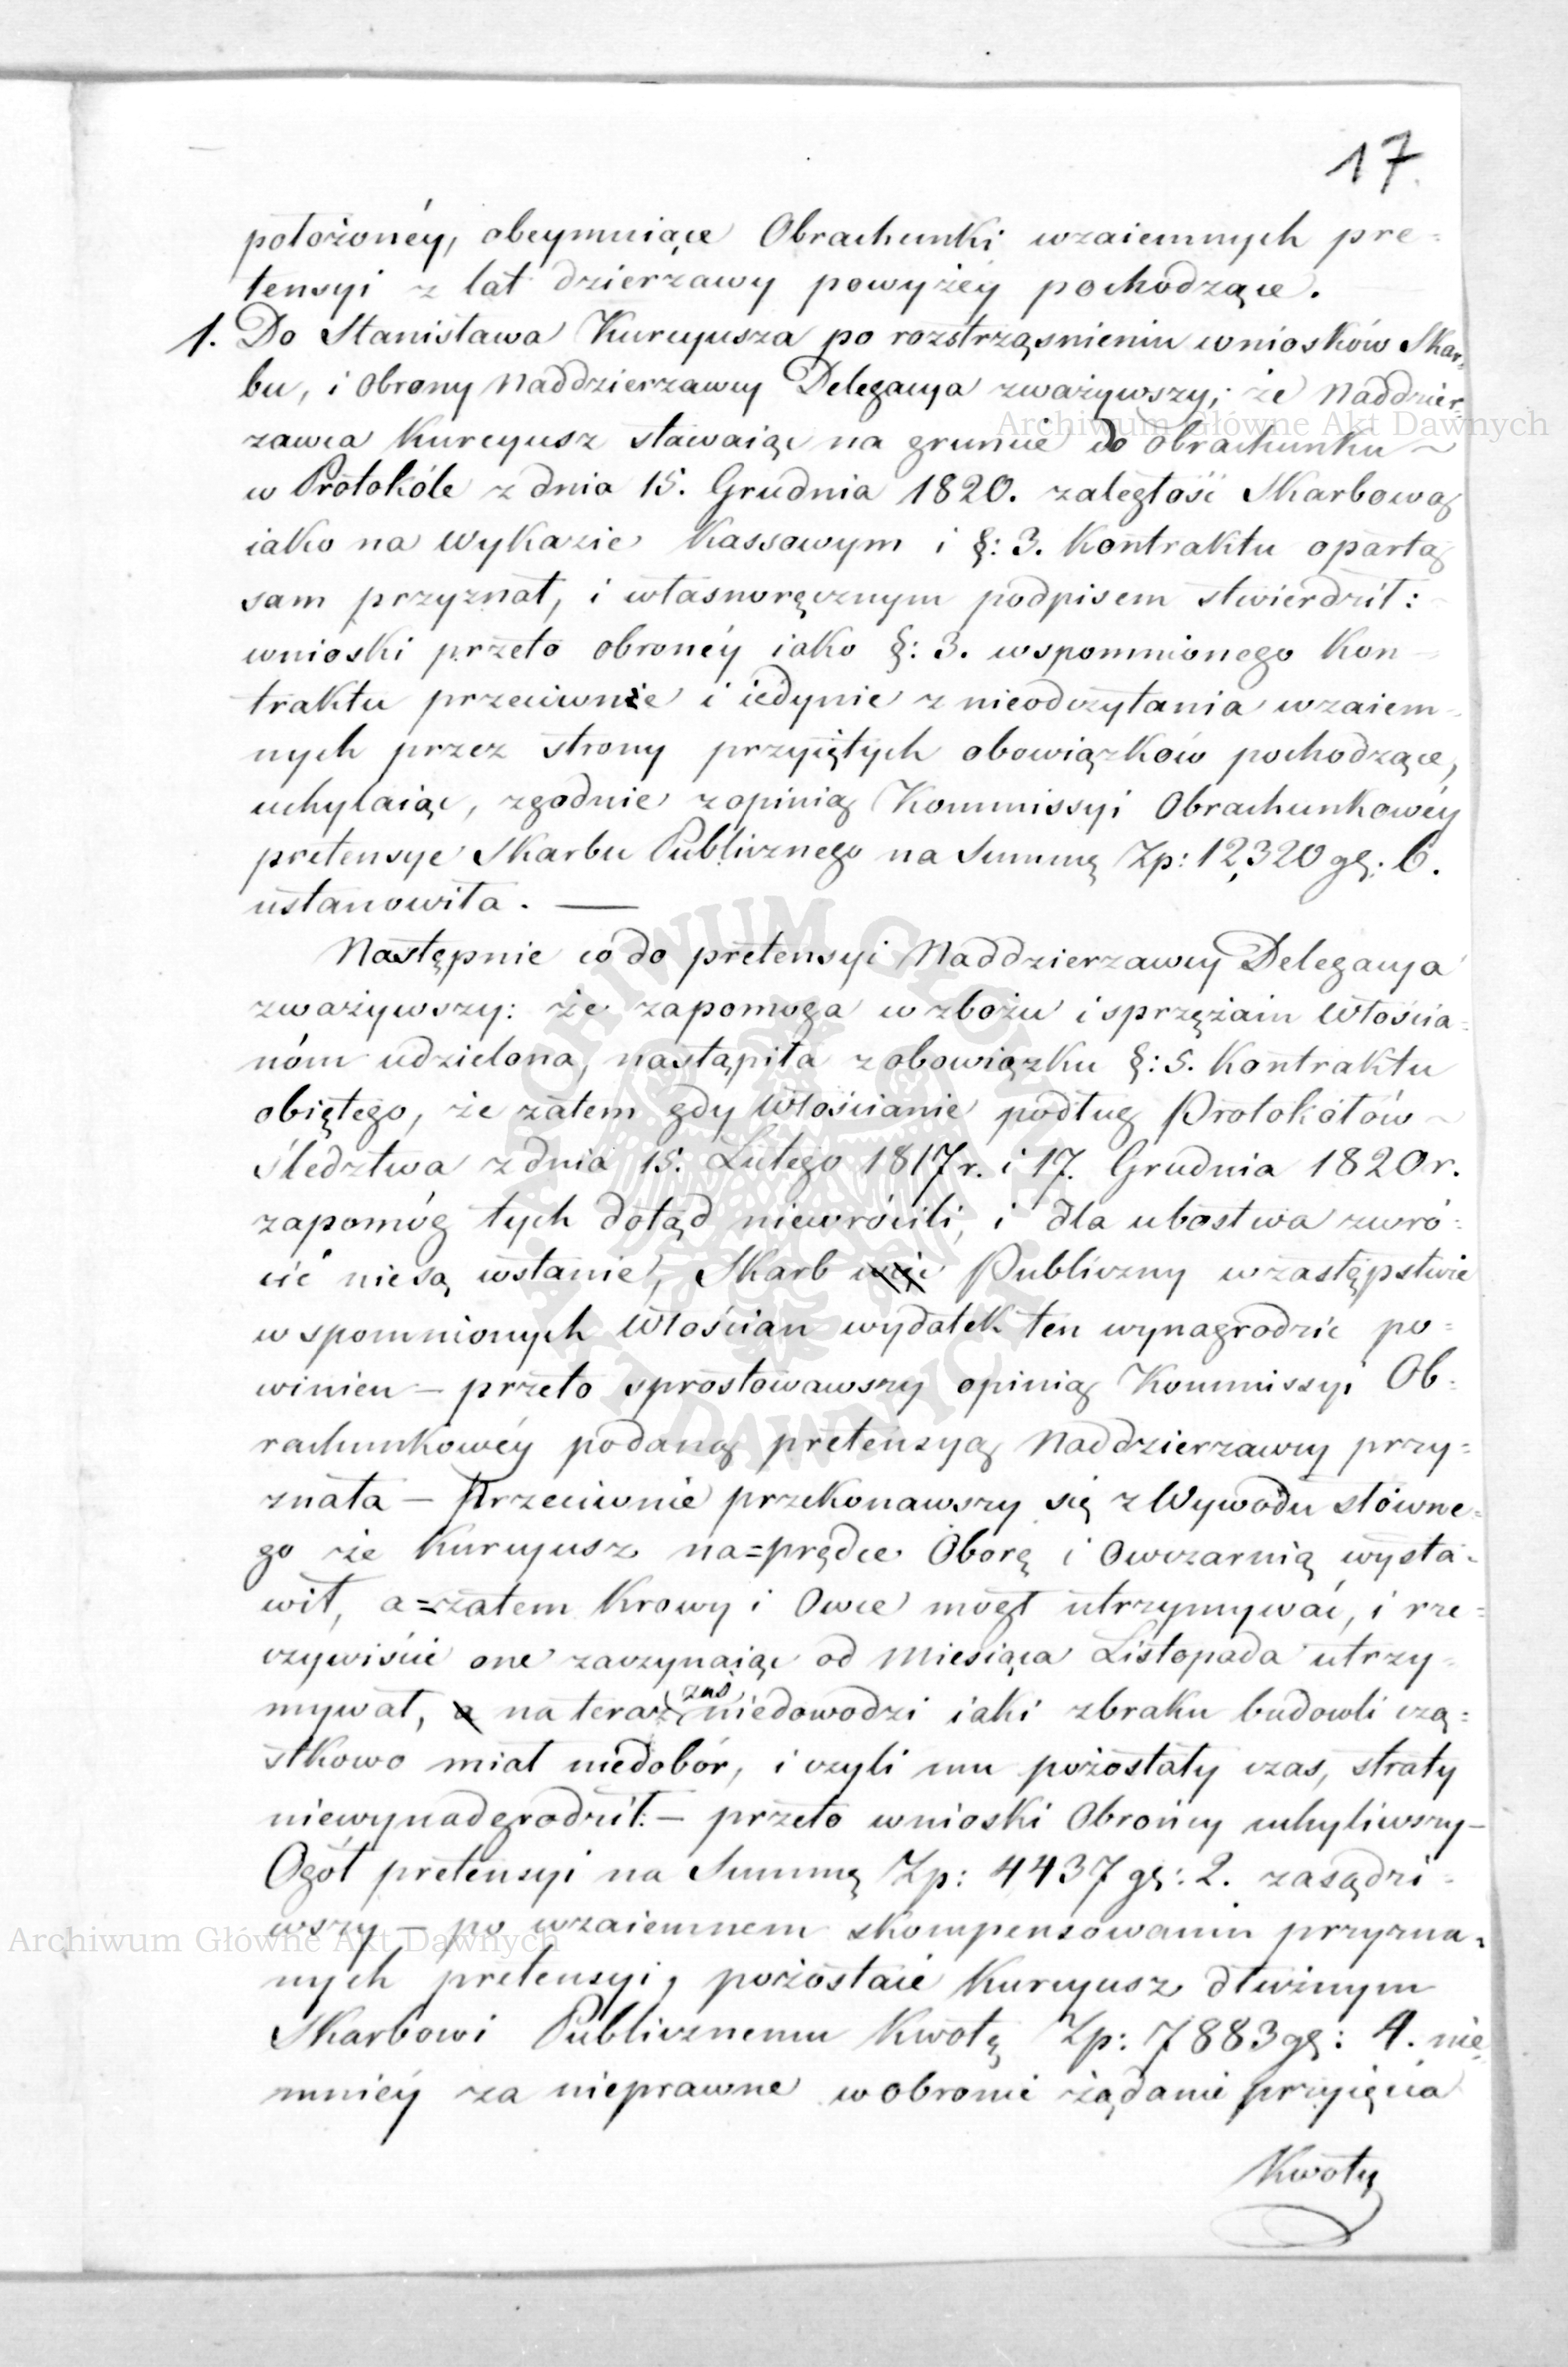 17.
położonéy, obeymuiące Obrachunki wzaiemnych pre=
tensyi z lat dzierzawy powyżéy pochodzące.
1. Do Stanisława Kurcyusza po rozstrząśnieniu wniosków Skar=
bu, i Obrony Naddzierzawcy Delegacya zważywszy; że Naddzier=
zawca Kurcyusz stawaiąc na gruncie do obrachunku ~
w Protokóle z dnia 15. Grudnia 1820. zaległość Skarbową
iako na Wykazie Kassowym i §: 3. Kontraktu opartą
sam przyznał, i własnoręcznym podpisem stwierdził: -
wnioski przeto obronéy iako §: 3. wspomnionego Kon-
traktu przeciwnie i iedynie z nieodczytania wzaiem-
nych przez strony przyiętych obowiązków pochodzące,
uchylaiąc, zgodnie z opinią Kommissyi Obrachunkowéy
pretensye Skarbu Publicznego na Summę Zp: 12,320 gę: 6.
ustanowiła. —
Następnie co do pretensyi Naddzierzawcy Delegacya
zważywszy: że zapomoga w zbożu i sprzężaiu Włościa=
nóm udzielona, nastąpiła z obowiązku §: 5. Kontraktu
obiętego, że zatem gdy Włościanie podług Protokółów ~
Śledztwa z dnia 15. Lutego 1817 r. i 17. Grudnia 1820 r.
zapomóg tych dotąd niewrócili, i dla ubostwa zwró=
cić niesą wstanie, Skarb Publiczny w zastępstwie
wspomnionych Włościan wydatek ten wynagrodzic po=
winien — przeto sprostowawszy opinią Kommissyi Ob=
rachunkowéy podaną pretensyą Naddzierzawcy przy=
znała — Przeciwnie przekonawszy się z Wywodu słowne=
go że Kurcyusz na=prędce Oborę i Owczarnią wysta=
wił, a=zatem Krowy i Owce mógł utrzymywać, i rze=
czywiście one zaczynaiąc od Miesiąca Listopada utrzy=
mywał, a na teraz zaś niedowodzi iaki z braku budowli czą=
stkowo miał niedobór, i czyli mu pozostały czas, straty
niewynadgrodził: — przeto wnioski Obrońcy uchyliwszy —
Ogół pretensyi na Summę Zp: 4437 gę: 2. zasądzi=
wszy — po wzaiemnem skompensowaniu przyzna=
nych pretensyi, pozostaie Kurcyusz dłużnym
Skarbowi Publicznemu Kwotę Zp: 7883 gę: 4. nie=
mniéy za nieprawne w obronie żądanie przyięcia
Kwoty
Archiwum Główne Akt Dawnych
Archiwum Główne Akt Dawnych
ARCHIWUM GŁÓWNE AKT DAWNYCH